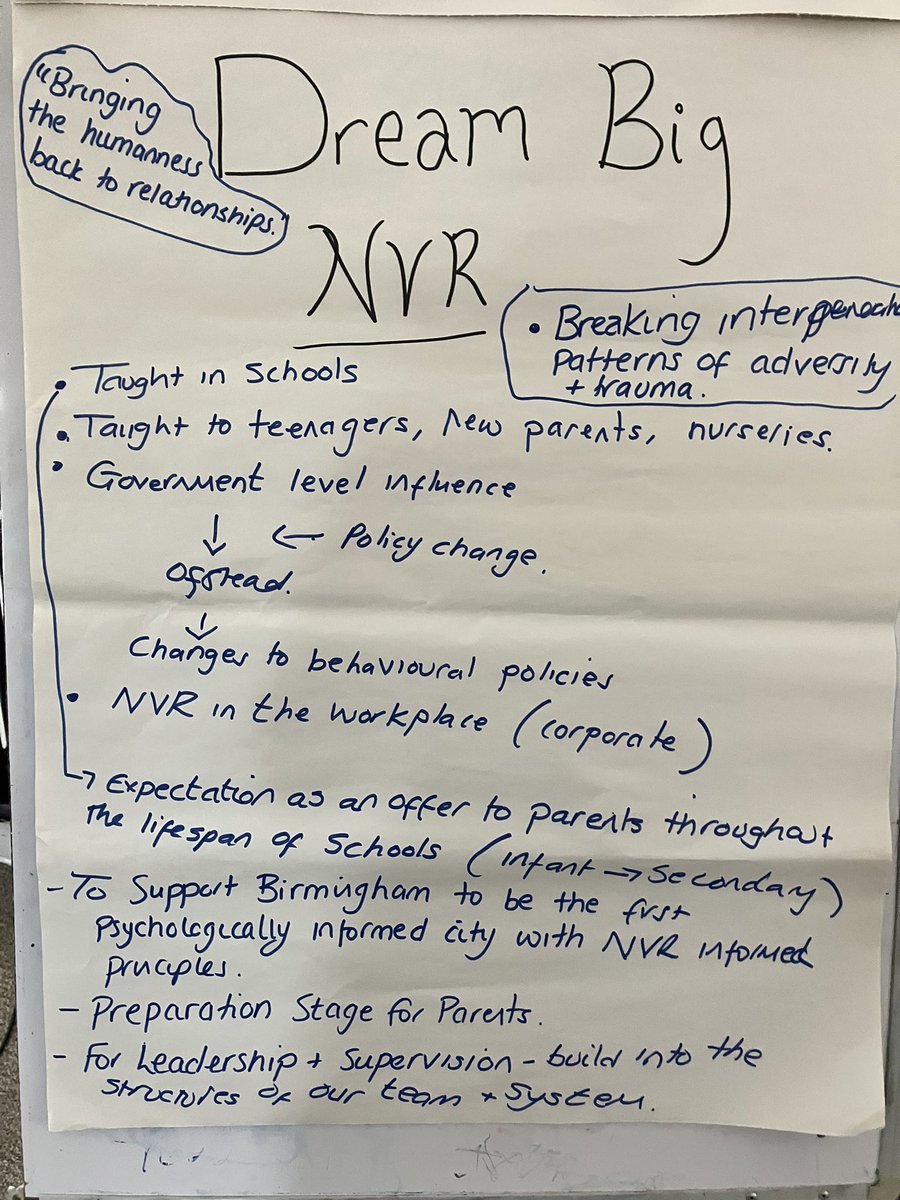 "Bringing
the humanness
back to relationships."
Dream Big
NVR
• Breaking
patterns of adversity
+ trauma.
• Taught in Schools
• Taught to teenagers, new parents, nurseries.
• Government level influence
↓ ← Policy change.
↓
Changes to behavioural policies
• NVR in the workplace (corporate)
→ Expectation as an offer to parents throughout
the lifespan of Schools (infant → Secondary)
- To Support Birmingham to be the first
Psychologically informed city with NVR informed
principles.
- Preparation Stage for Parents.
- For Leadership + Supervision - build into the
structures of our team + System.